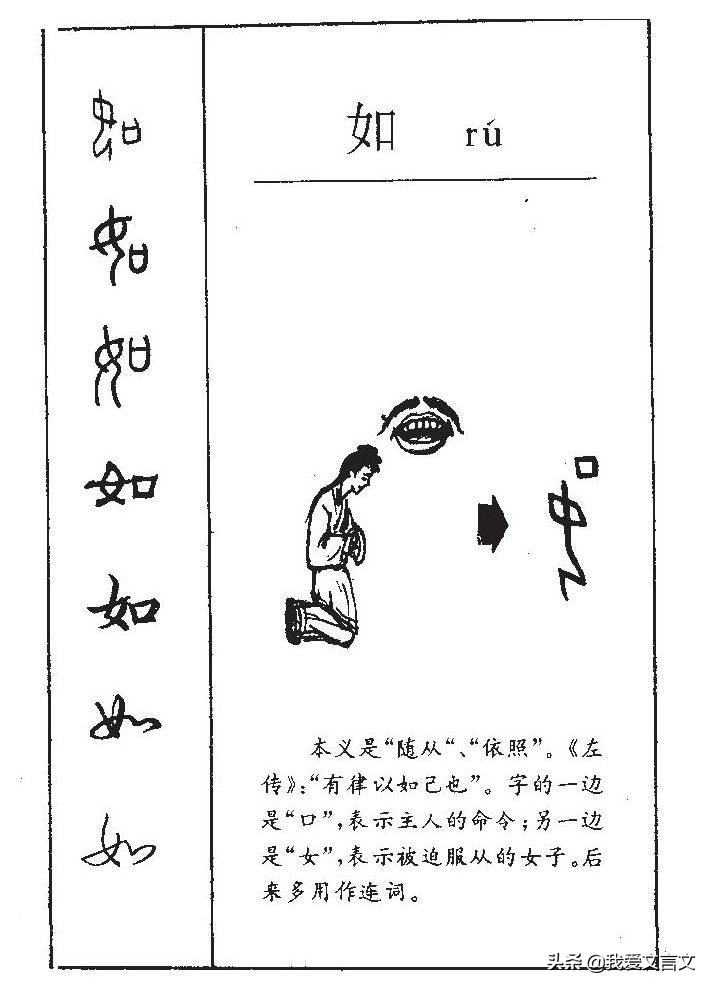 如 rú
如
如
如
如
如
如
如
本义是“随从“、“依照”。《左
传》：“有律以如己也”。字的一边
是“口”，表示主人的命令；另一边
是“女”，表示被迫服从的女子。后
来多用作连词。
头条 @我爱文言文